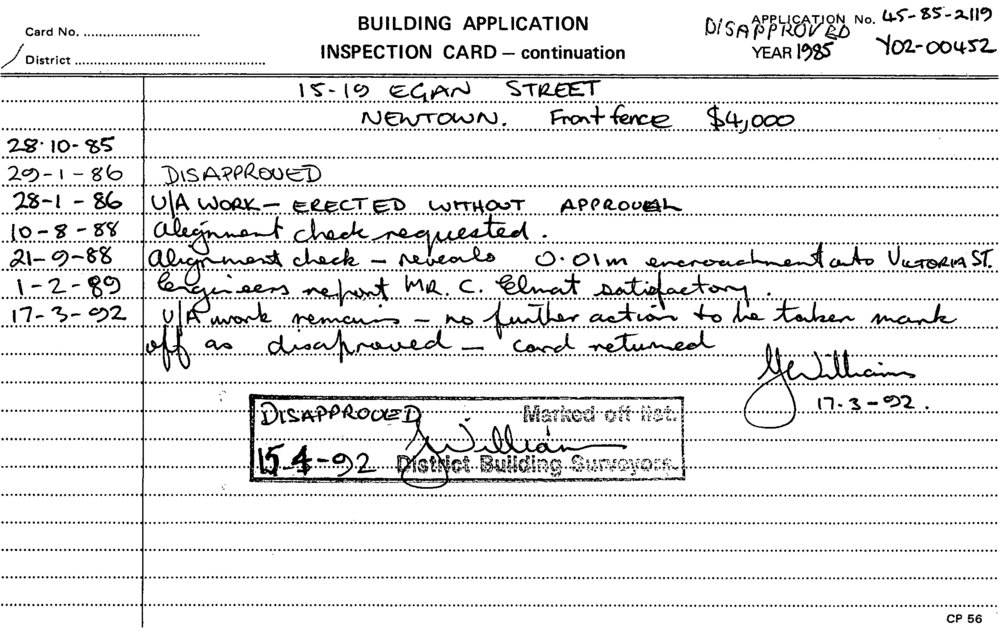 Card No. ..............................
BUILDING APPLICATION
APPLICATION No. 45-85-2119
DISAPPROVED
INSPECTION CARD – continuation
YEAR 1985 Y02-00452
District ..............................
15-19 EGAN STREET
NEWTOWN. Front fence $4,000
28·10-85
29-1-86 DISAPPROVED
28-1-86 U/A WORK – ERECTED WITHOUT APPROVAL
10-8-88 Alignment check requested.
21-9-88 Alignment check – reveals 0.01m encroachment onto VICTORIA ST.
1-2-89 Engineers report MR. C. Elmat satisfactory.
17-3-92 U/A work remains – no further action to be taken mark
off as disaproved – card returned
Williams
17-3-92.
DISAPPROVED Marked off list.
15-4-92 District Building Surveyors.
CP 56